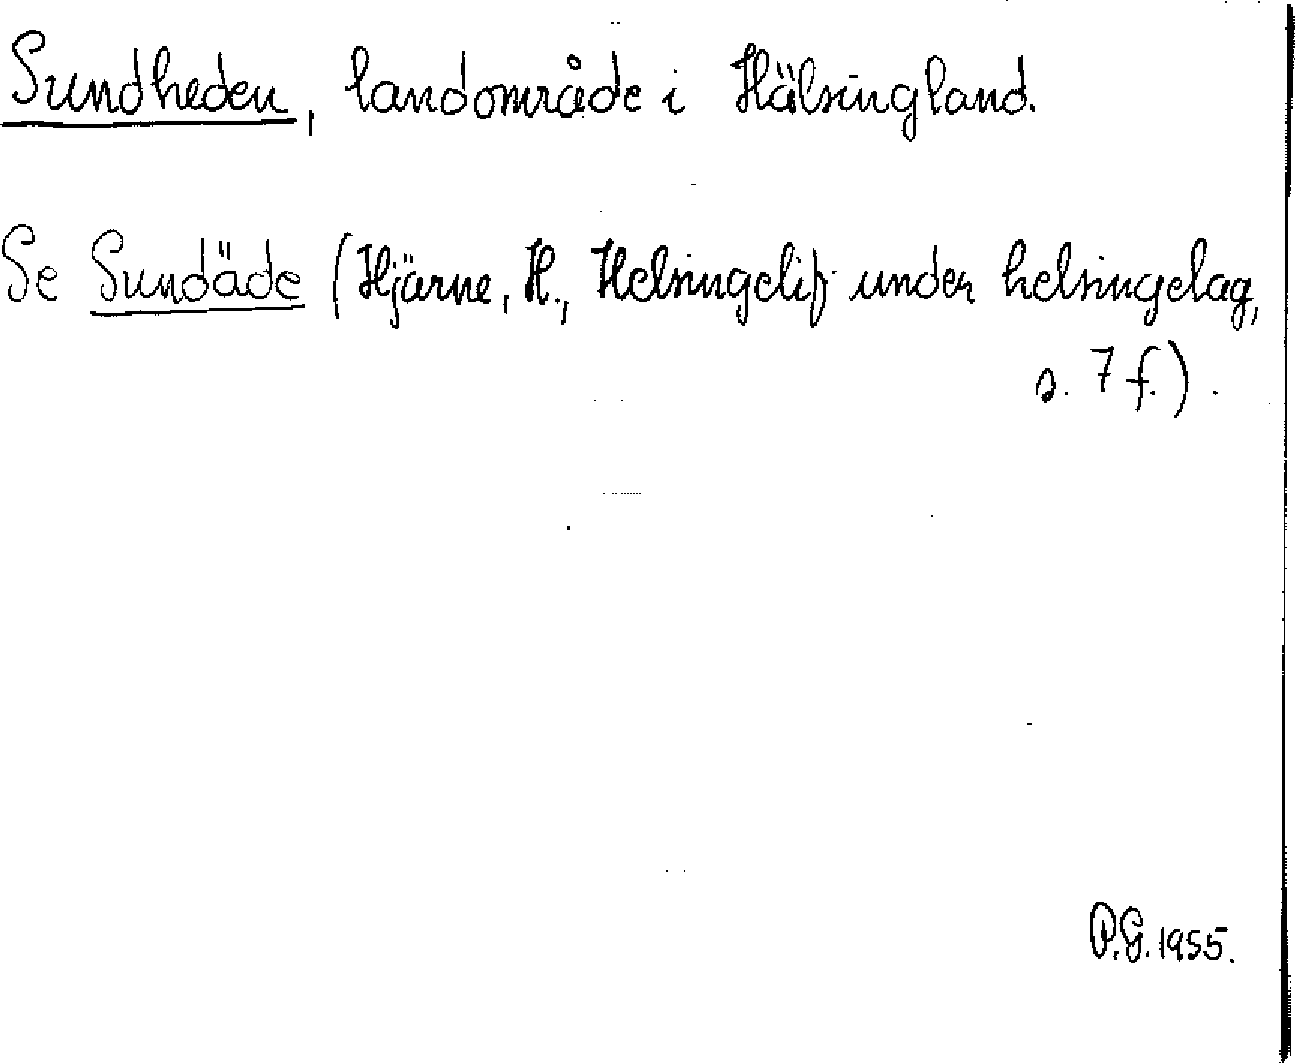 Sundheden, landområde i Hälsingland.
Se Sundäde (Hjärne, H., Helsingelif under helsingelag,
s. 7 f.).
P.G. 1955.